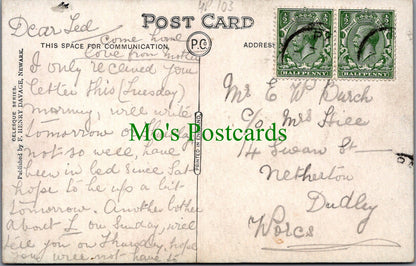 SP 103
Dear Ted
POST CARD
Come home
love from mother
THIS SPACE FOR COMMUNICATION.
P.C.
ADDRESS
HALFPENNY
HALFPENNY
CELESQUE SERIES.
Published by P. HENRY DAVAGE, NEWARK.
PRINTED IN ENGLAND
I only received you
letter this (Tuesday)
morning will write
tomorrow or Thursday
not so well, have
been in bed since Sat
hope to be up a bit
tomorrow. Another bother
about L on Sunday, will
tell you on Thursday, hope
you will not have to
Mr E W Burch
c/o Mrs Hill
14 Swan St
Netherton
Dudley
Worcs
Mo's Postcards